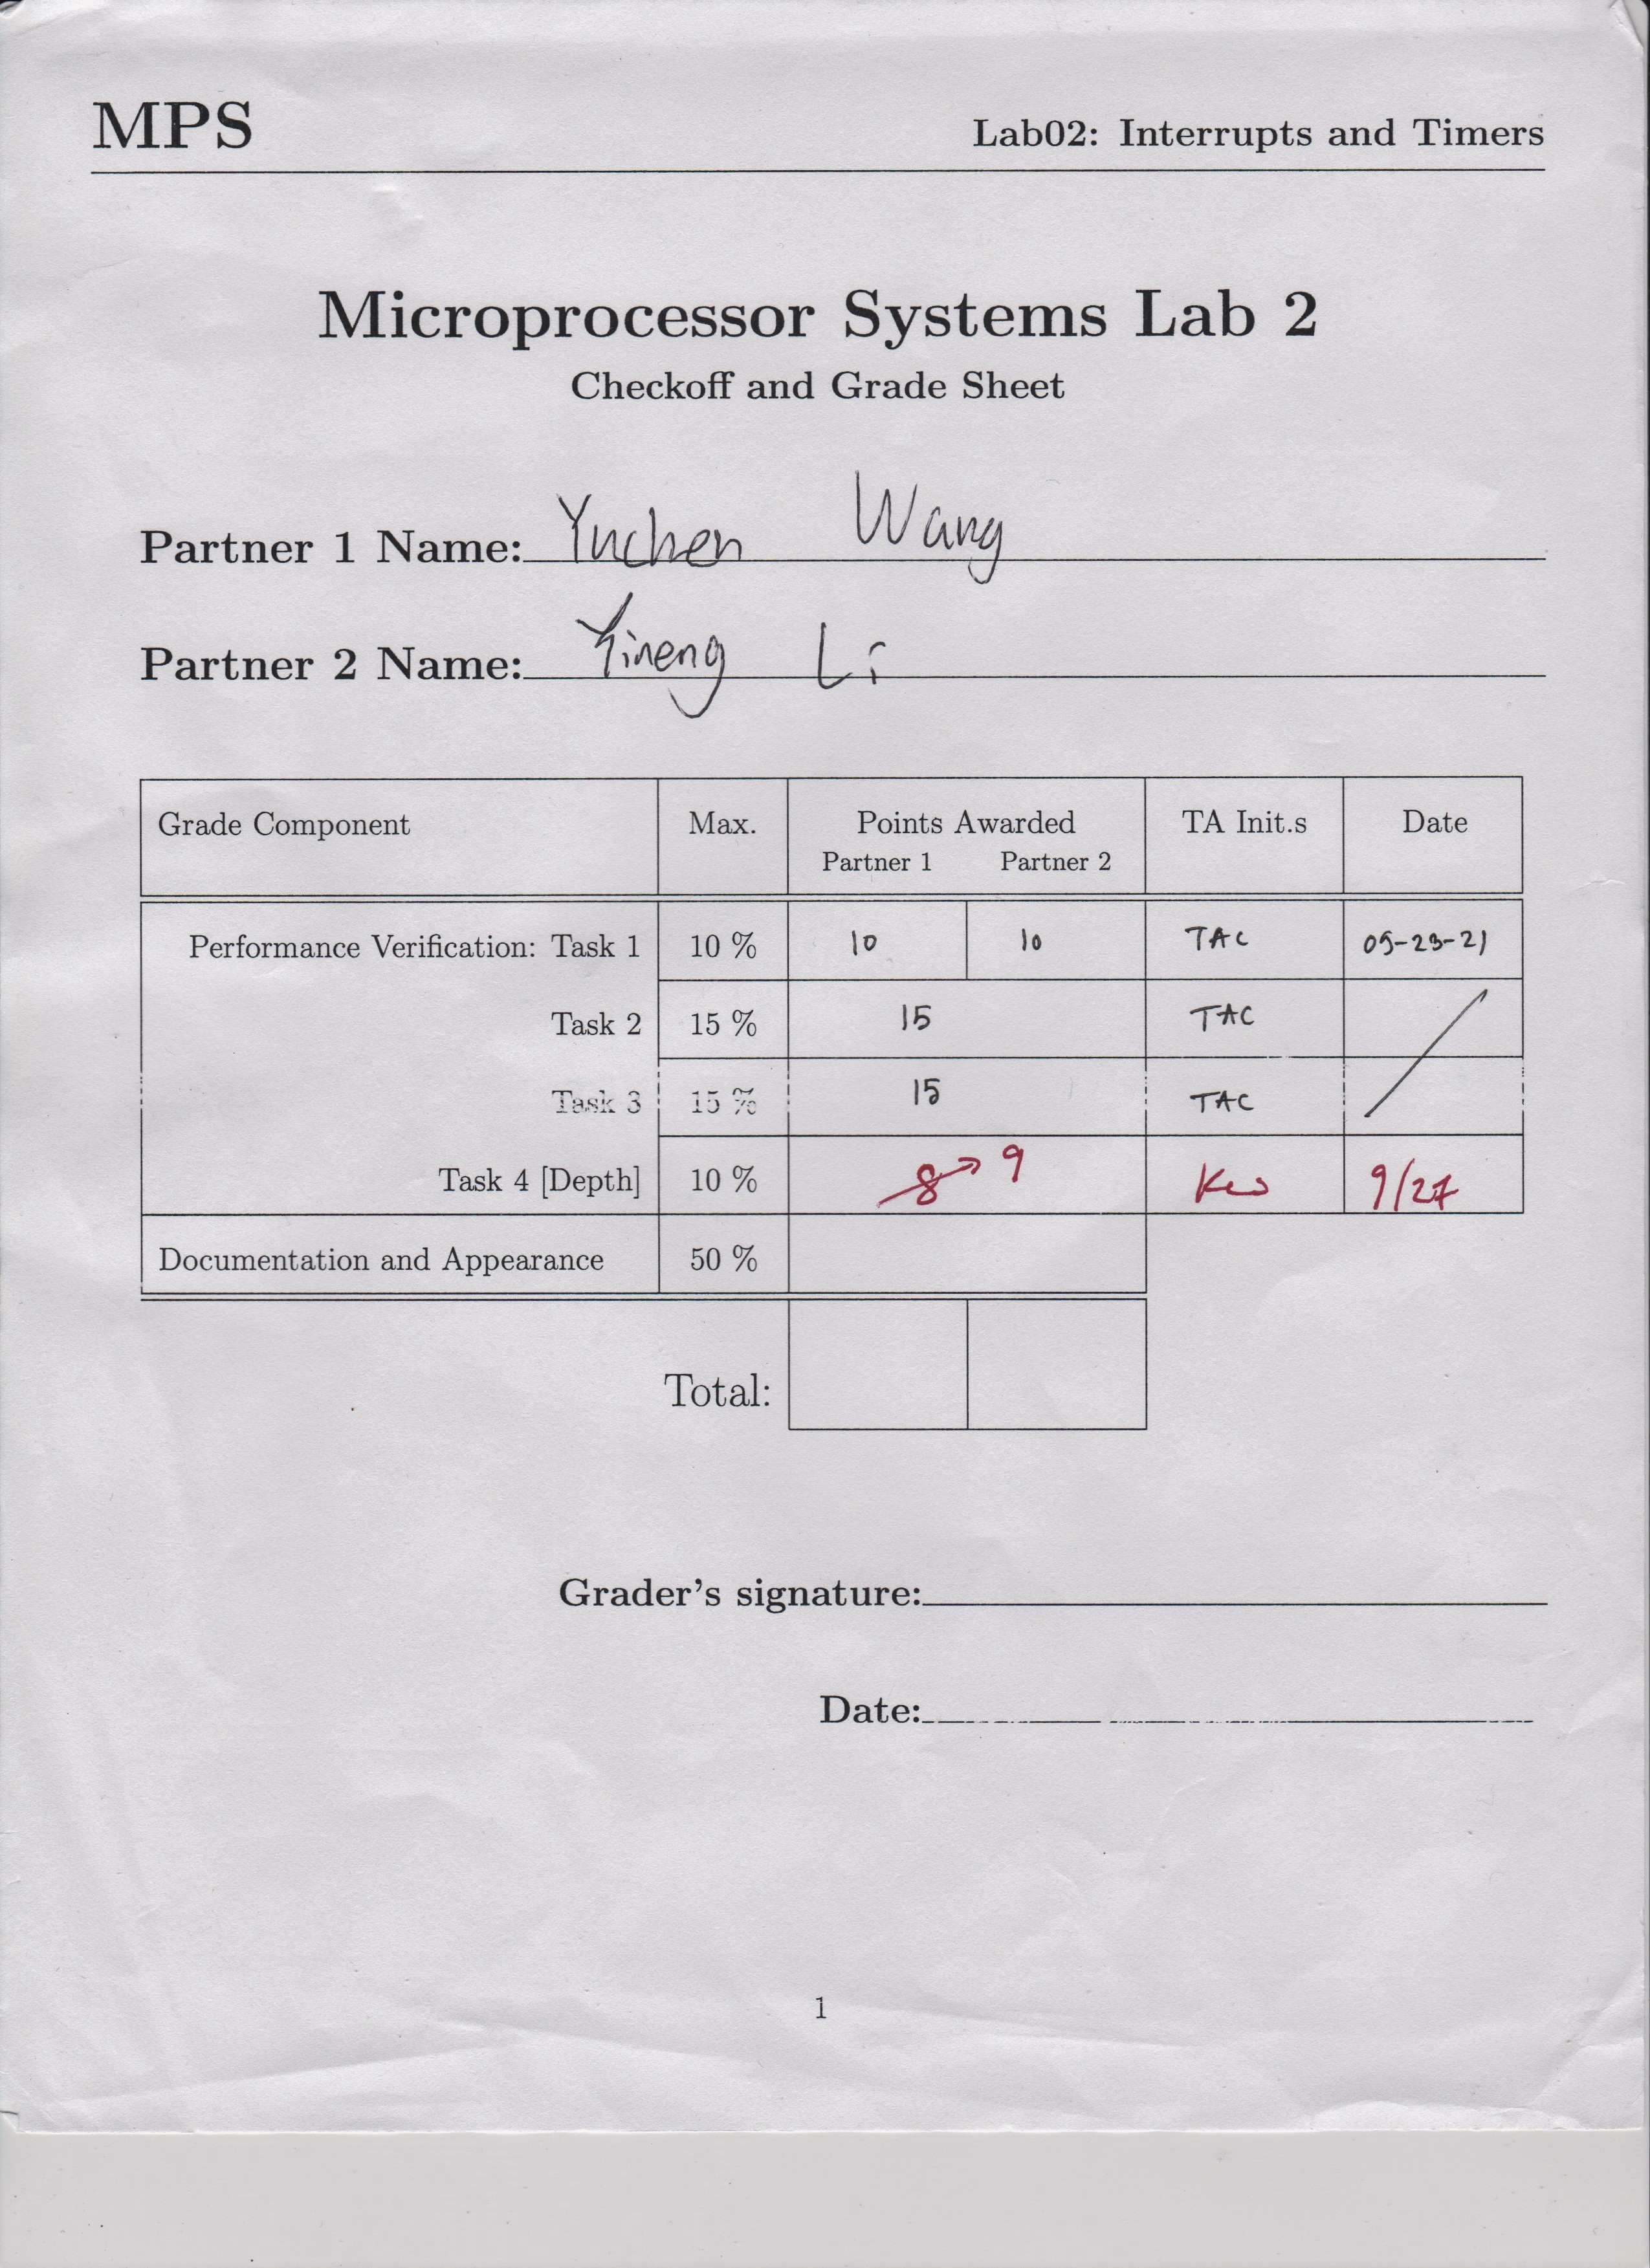 MPS
Lab02: Interrupts and Timers
Microprocessor Systems Lab 2
Checkoff and Grade Sheet
Partner 1 Name: Yuchen Wang
Partner 2 Name: Yineng Li
Grade Component Max. Points Awarded TA Init.s Date
Partner 1 Partner 2
Performance Verification: Task 1 10 % 10 10 TAC 09-23-21
Task 2 15 % 15 TAC
Task 3 15 % 15 TAC
Task 4 [Depth] 10 % 8 9 9/27
Documentation and Appearance 50 %
Total:
Grader's signature:
Date:
1